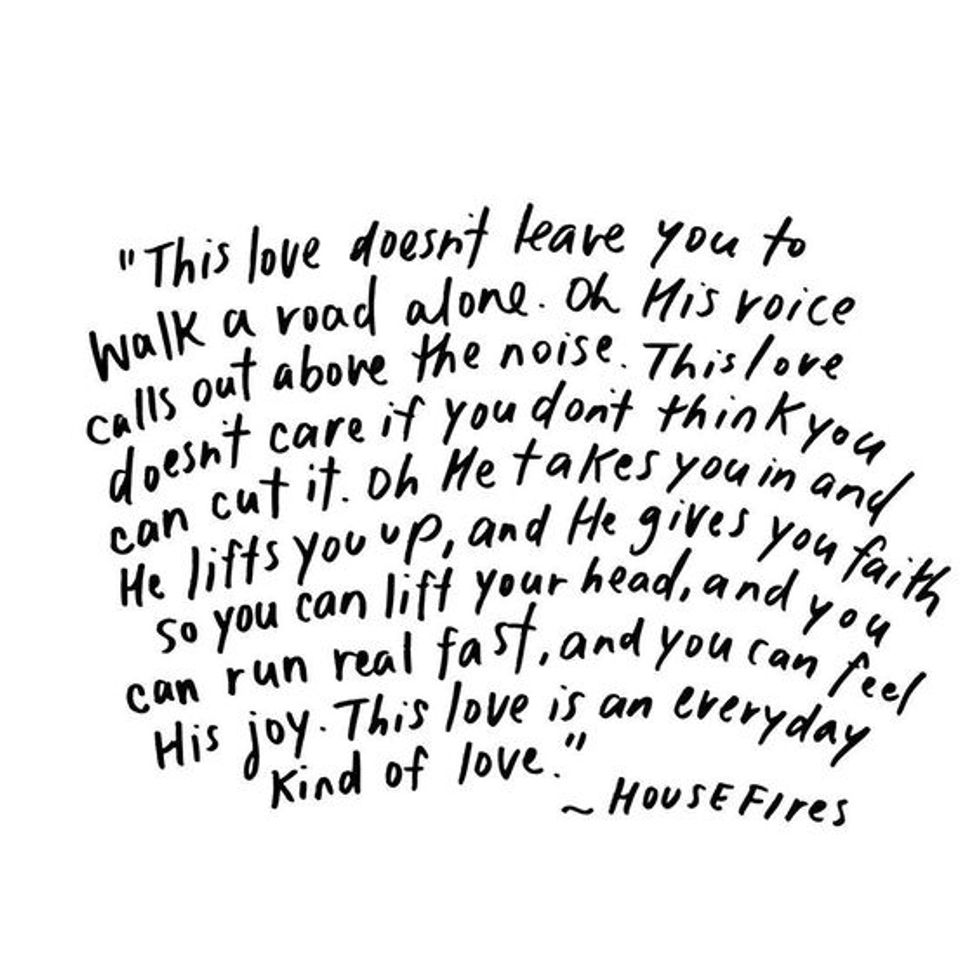 "This love doesn't leave you to
walk a road alone. Oh His voice
calls out above the noise. This love
doesn't care if you don't think you
can cut it. Oh He takes you in and
He lifts you up, and He gives you faith
so you can lift your head, and you
can run real fast, and you can feel
His joy. This love is an everyday
kind of love."
~ HOUSEFIres